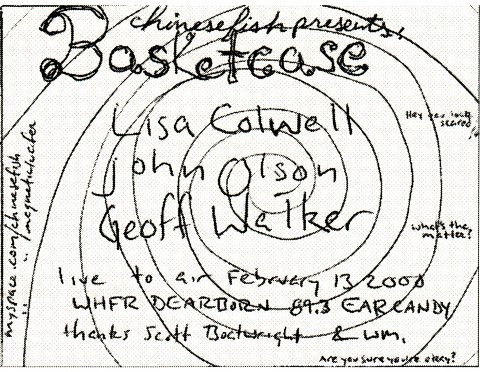 chinesefish presents,
Basketcase
Lisa Colwell
John Olson
Geoff Walker
Hey you look scared
what's the matter?
live to air February 13 2000
WHFR DEARBORN 89.3 EARCANDY
thanks Scott Boatwright & wm.
Are you sure you're okay?
myspace.com/chinesefish
" " /magneticwafer